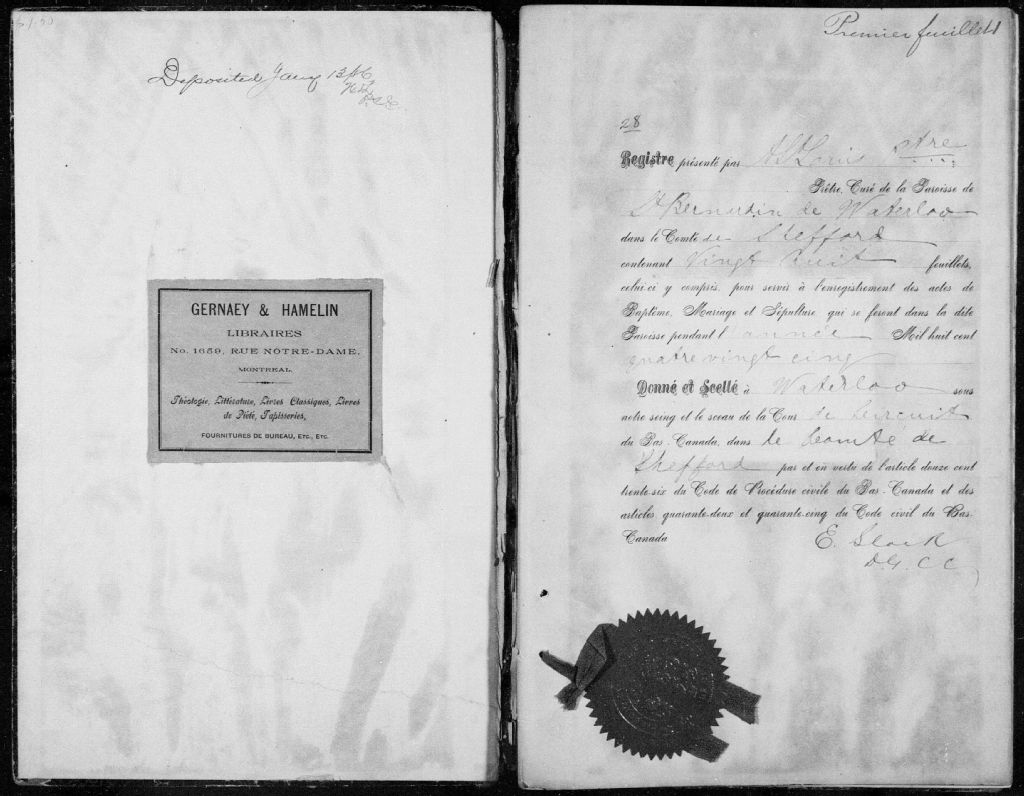 Deposited Jany 13/86
GERNAEY & HAMELIN
LIBRAIRES
No. 1659, RUE NOTRE-DAME,
MONTREAL.
Théologie, Littérature, Livres Classiques, Livres
de Piété, Tapisseries,
FOURNITURES DE BUREAU, ETC., ETC.
Premier feuillet
28
Registre présenté par A St Louis Ptre
Prêtre, Curé de la Paroisse de
St Bernardin de Waterloo
dans le Comté de Shefford
contenant Vingt huit feuillets,
celui-ci y compris, pour servir à l'enregistrement des actes de
Baptême, Mariage et Sépulture, qui se feront dans la dite
Paroisse pendant l'année Mil huit cent
quatre vingt cinq
Donné et Scellé à Waterloo sous
notre seing et le sceau de la Cour de Circuit
du Bas-Canada, dans le Comté de
Shefford par et en vertu de l'article douze cent
trente-six du Code de Procédure civile du Bas-Canada et des
articles quarante-deux et quarante-cinq du Code civil du Bas-
Canada
E. Slack
D.G.C.C.